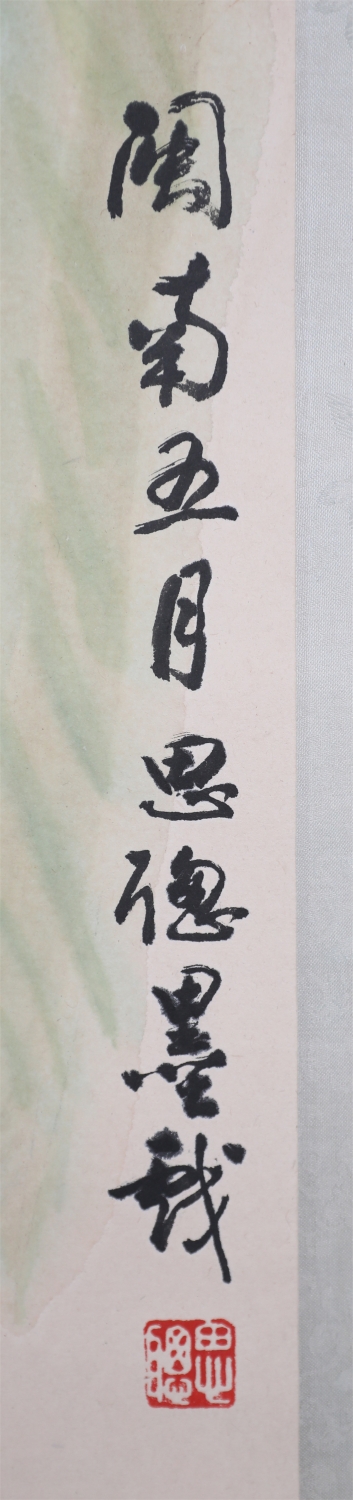 閩南五月思聰墨戲
思聰